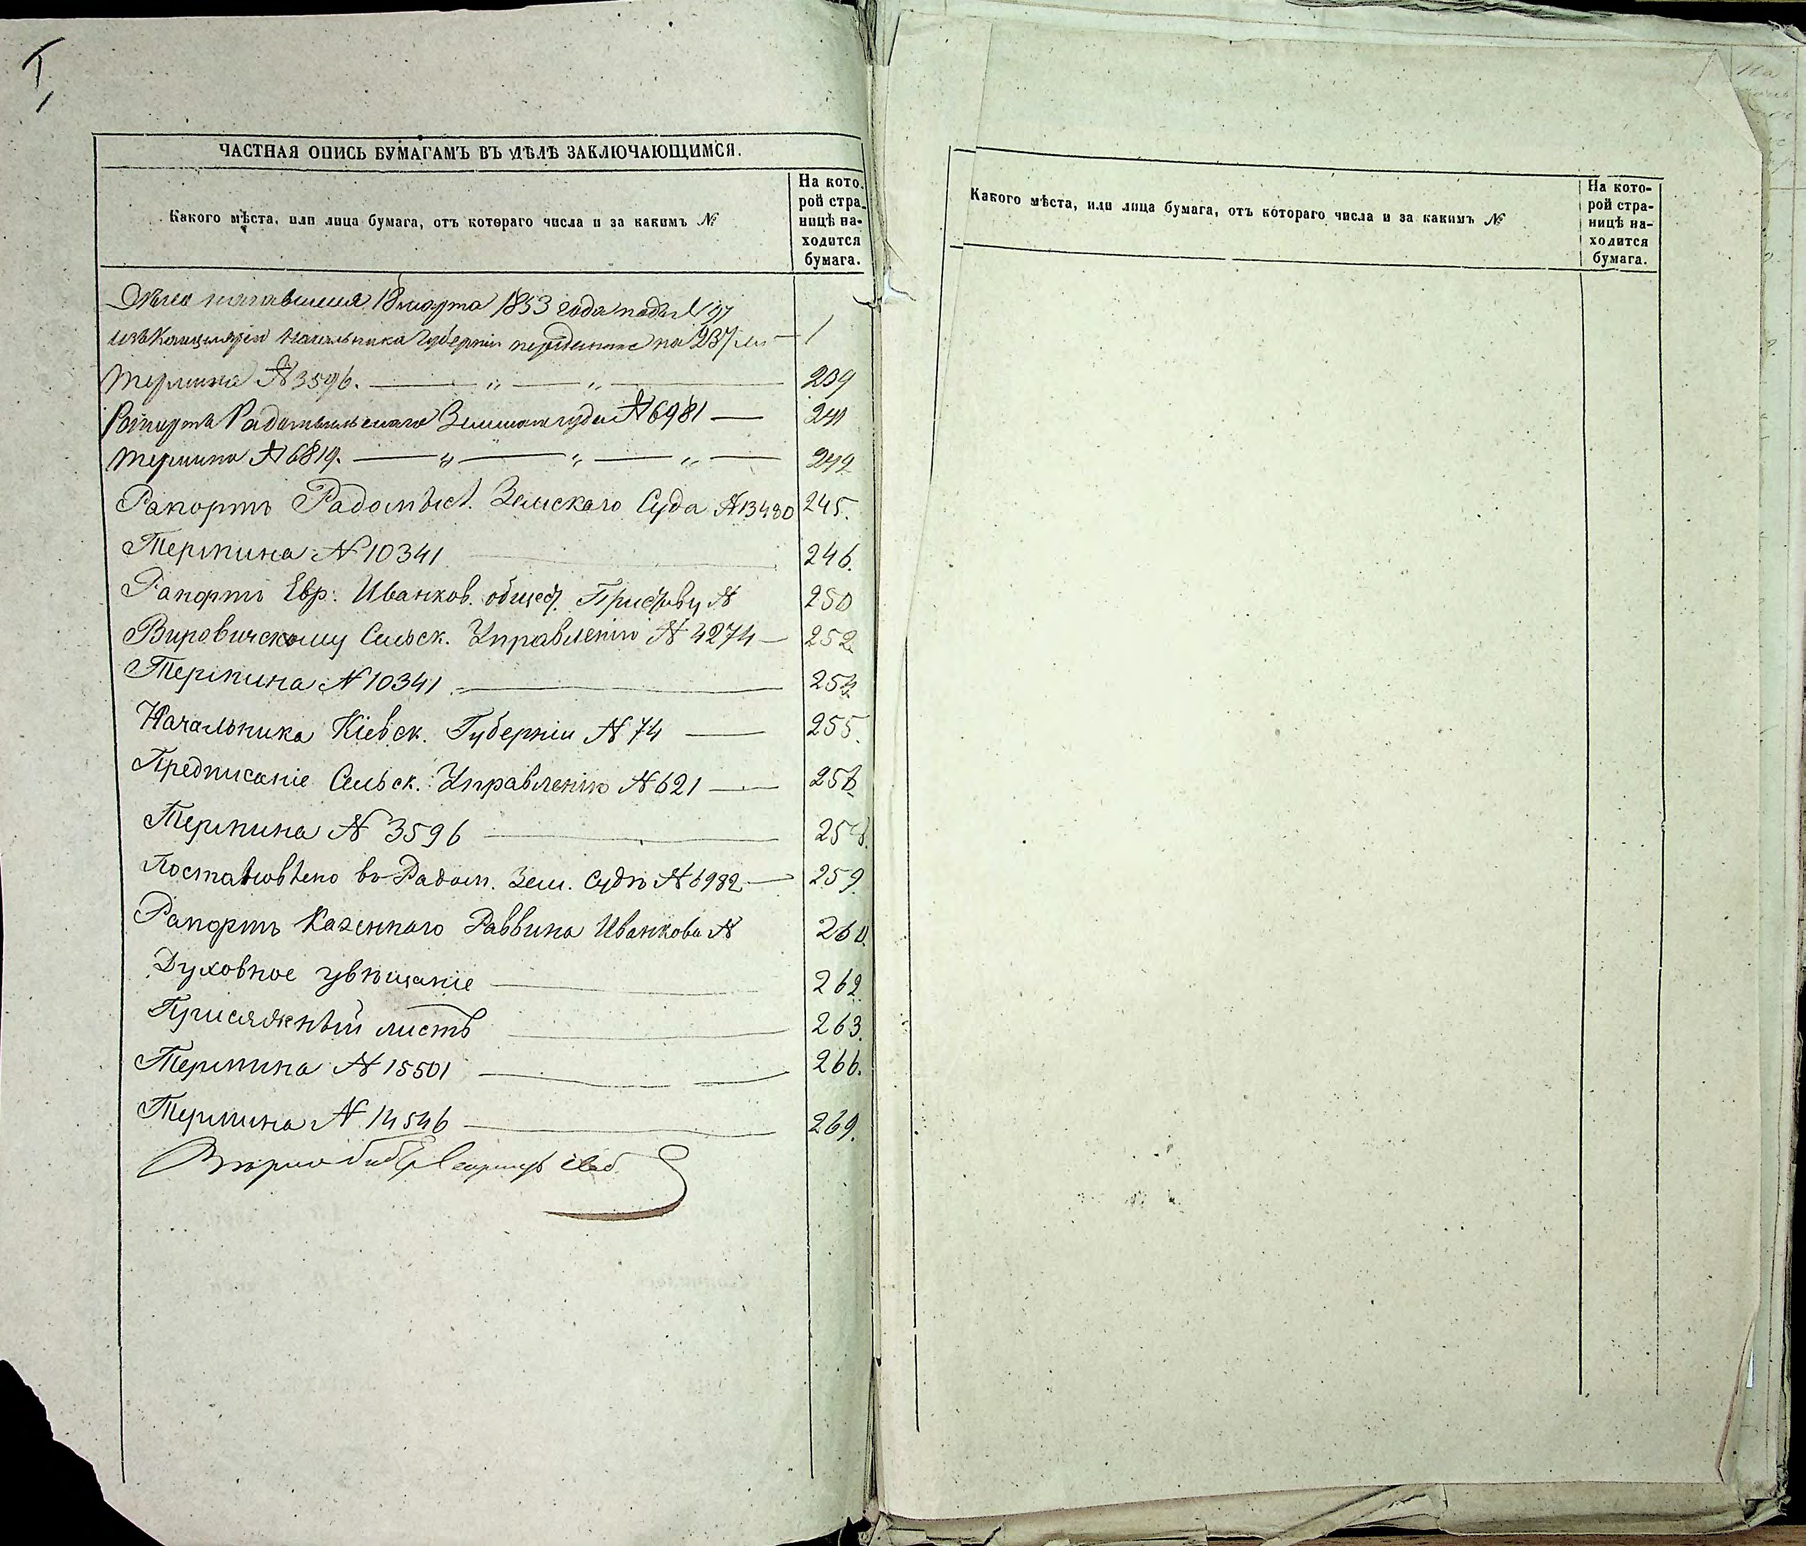 ЧАСТНАЯ ОПИСЬ БУМАГАМЪ ВЪ ДѢЛѢ ЗАКЛЮЧАЮЩИМСЯ.
Какого мѣста, или лица бумага, отъ котораго числа и за какимъ №
На кото-
рой стра-
ницѣ на-
ходится
бумага.
Дѣло 18 марта 1853 года подъ № 97
изъ Канцеляріи Начальника Губерніи на 237 — 1
Термина № 3596. — „ — „ — 239
Рапортъ Радомысльскаго Земскаго суда № 6981 — 241
Термина № 6819. — „ — „ — „ — 242
Рапортъ Радомысл. Земскаго Суда № 13480 245.
Термина № 10341 246.
Рапортъ Евр. Иванков. общест. Приставу № 250
Вировичскому Сельск. Управленію № 4274 — 252
Термина № 10341. — 254
Начальника Кіевск. Губерніи № 74 — 255.
Предписаніе Сельск. Управленію № 621 — 256
Термина № 3596 — 258.
въ Радом. Зем. Судѣ № 6982 — 259
Рапортъ Казеннаго Раввина Иванкова № 260.
Духовное увѣщаніе — 262
Присяжный листъ — 263.
Термина № 15501 — 266.
Термина № 14546 — 269.
Какого мѣста, или лица бумага, отъ котораго числа и за какимъ №
На кото-
рой стра-
ницѣ на-
ходится
бумага.